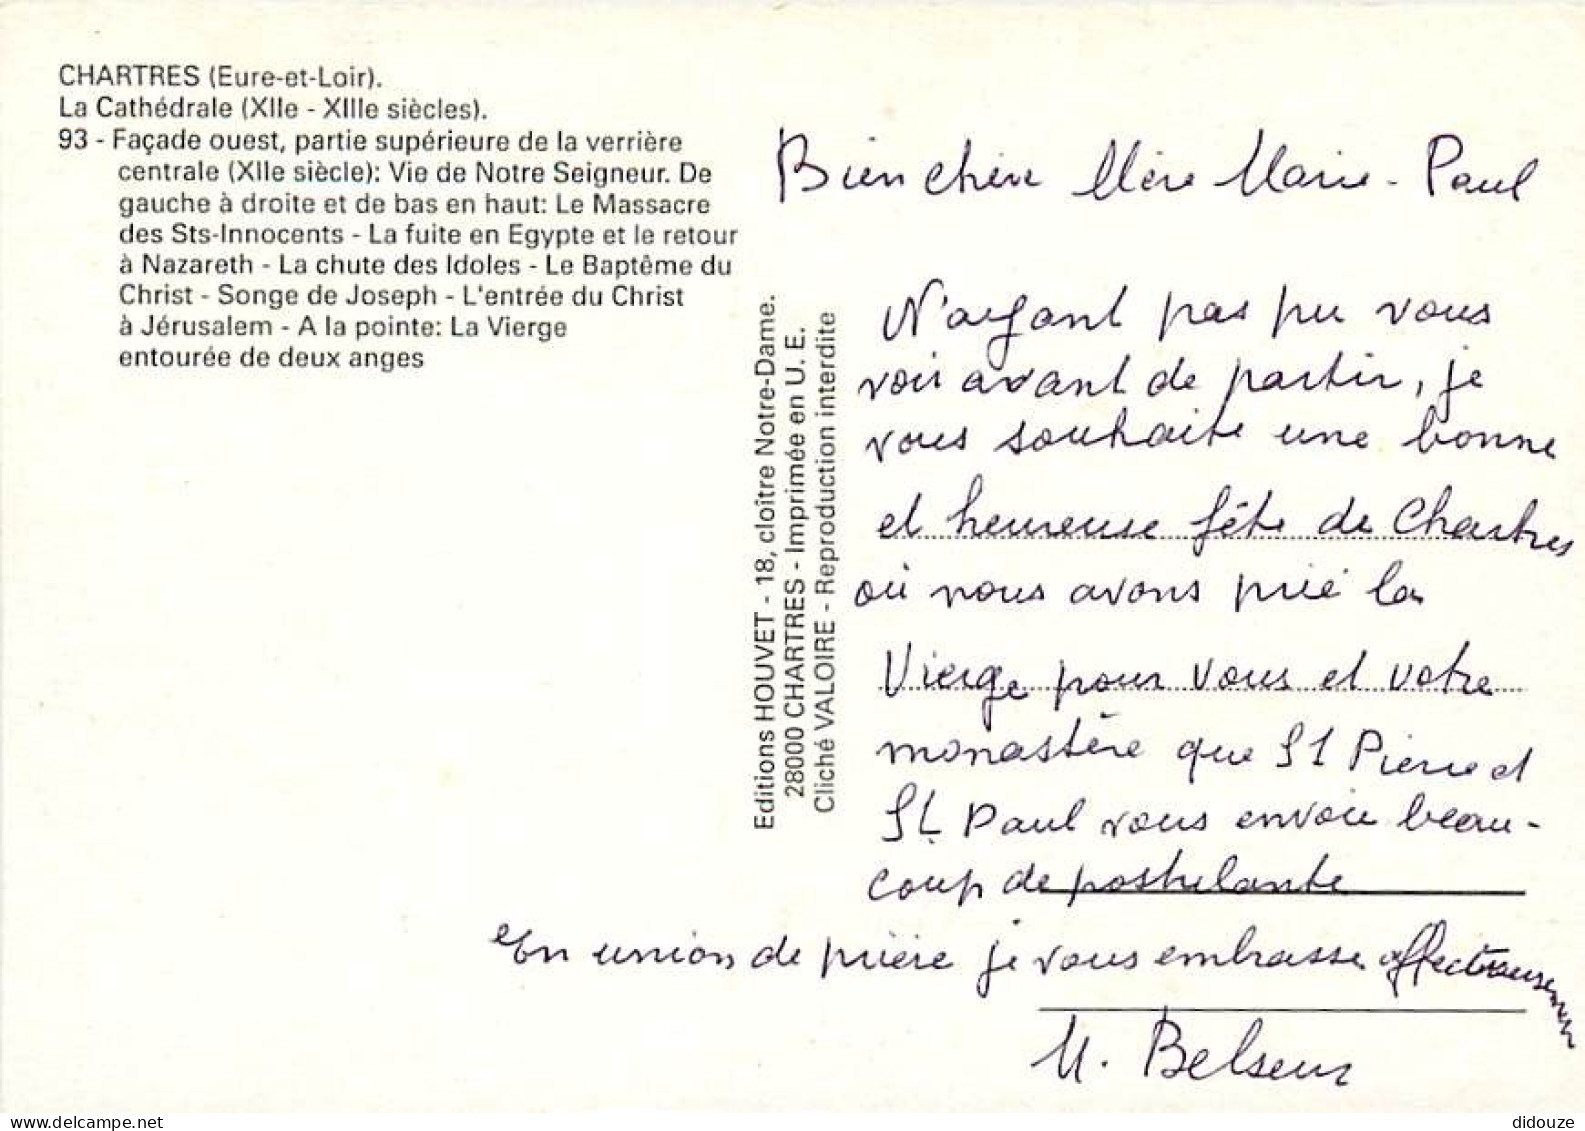 CHARTRES (Eure-et-Loir).
La Cathédrale (XIIe - XIIIe siècles).
93 - Façade ouest, partie supérieure de la verrière
centrale (XIIe siècle): Vie de Notre Seigneur. De
gauche à droite et de bas en haut: Le Massacre
des Sts-Innocents - La fuite en Egypte et le retour
à Nazareth - La chute des Idoles - Le Baptême du
Christ - Songe de Joseph - L'entrée du Christ
à Jérusalem - A la pointe: La Vierge
entourée de deux anges
Editions HOUVET - 18, cloître Notre-Dame.
28000 CHARTRES - Imprimée en U. E.
Cliché VALOIRE - Reproduction interdite
Bien chère Mère Marie-Paul
N'ayant pas pu vous
voir avant de partir, je
vous souhaite une bonne
et heureuse fête de Chartres
où nous avons prié la
Vierge pour vous et votre
monastère que St Pierre et
St Paul vous envoie beau-
coup de postulante
En union de prière je vous embrasse affectueusement
M.
didouze